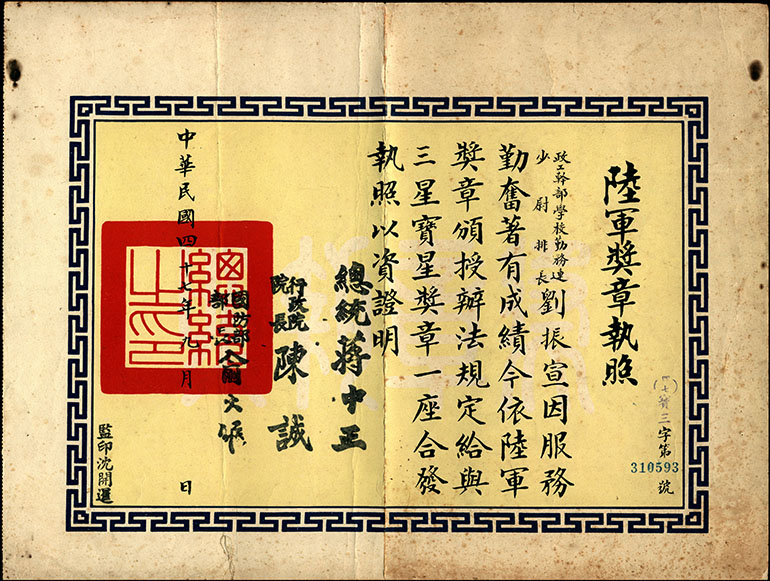 陸軍獎章執照
(四七)寶三字第310593號
政工幹部學校勤務連
少尉排長劉振宣因服務
勤奮著有成績今依陸軍
獎章頒授辦法規定給與
三星寶星獎章一座合發
執照以資證明
總統蔣中正
行政院
院長陳誠
國防部
部長俞大維
中華民國四十七年九月日
監印沈開運
總統之印